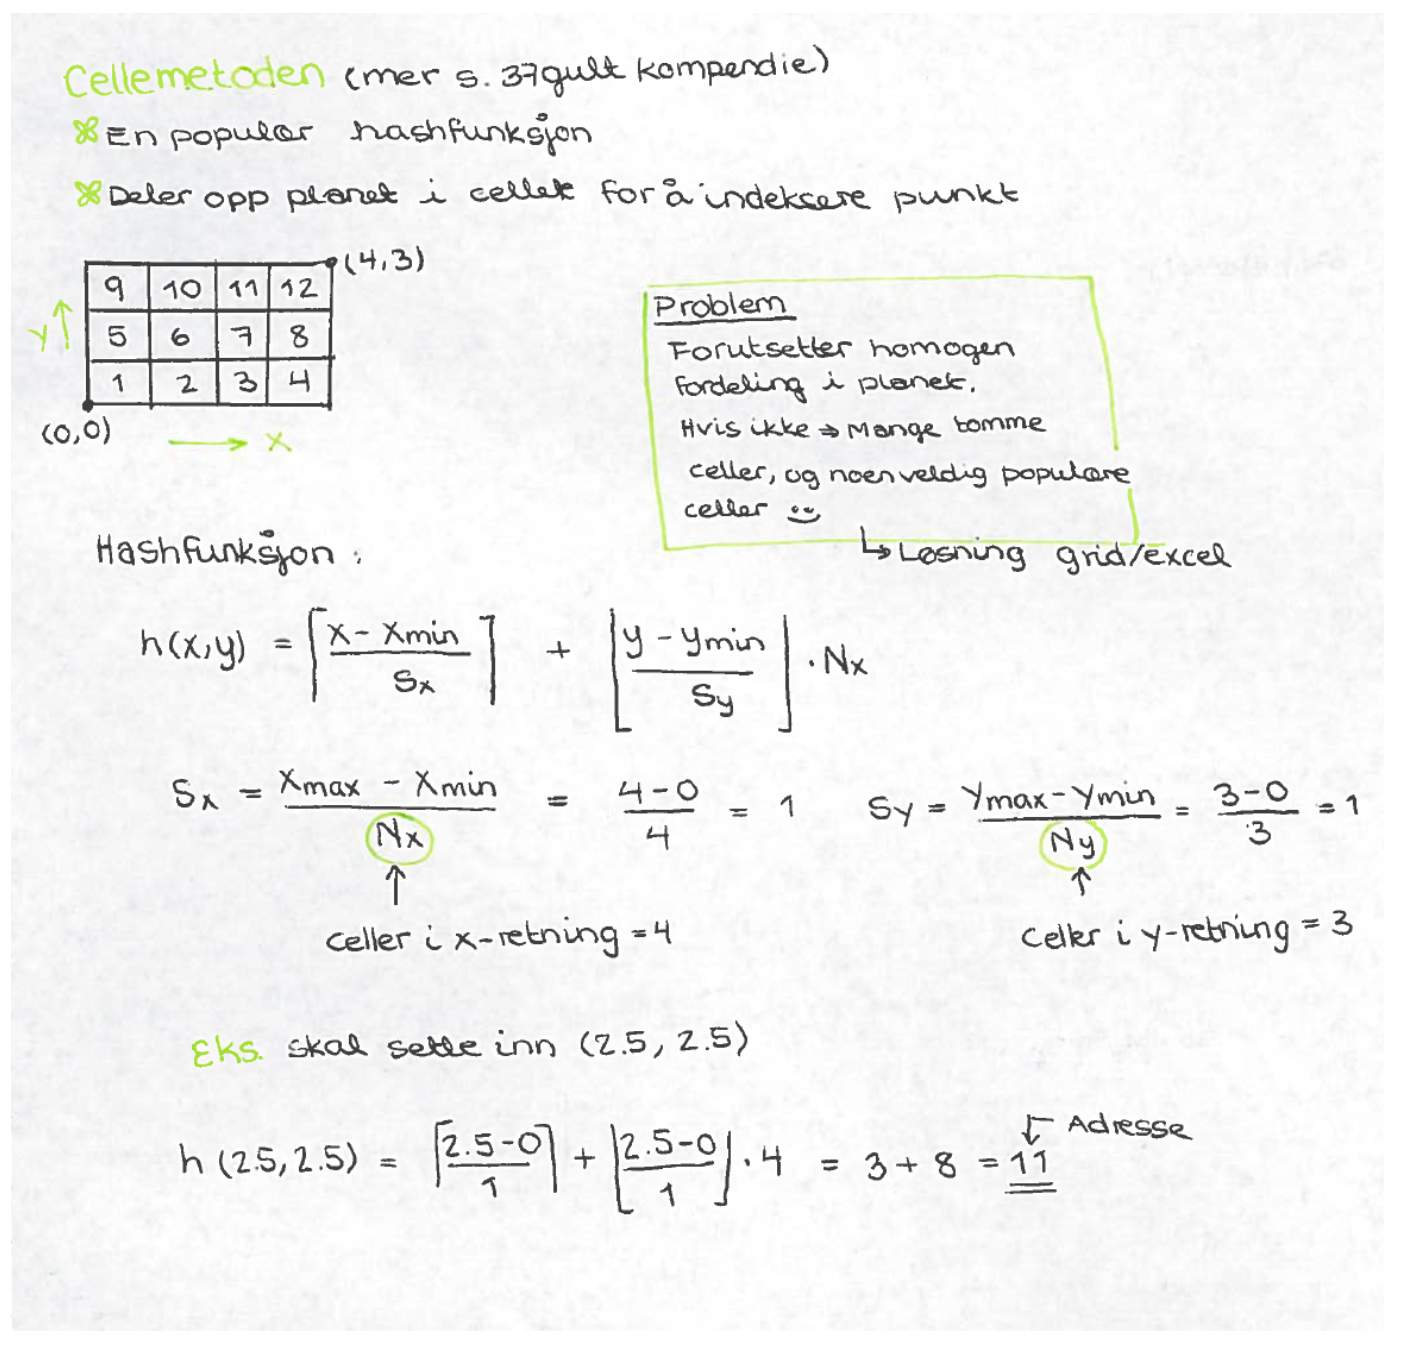 Cellemetoden (mer s. 37 gult kompendie)
En populær hashfunksjon
Deler opp planet i celler for å indeksere punkt
(4,3)
9 10 11 12
5 6 7 8
1 2 3 4
y
(0,0)
x
Problem
Forutsetter homogen
fordeling i planet.
Hvis ikke → Mange tomme
celler, og noen veldig populære
celler
↳ Løsning grid/excel
Hashfunksjon:
h(x,y) = ⌈(x - xmin)/Sx⌉ + ⌊(y - ymin)/Sy⌋ · Nx
Sx = (Xmax - Xmin)/Nx = (4-0)/4 = 1 Sy = (Ymax - Ymin)/Ny = (3-0)/3 = 1
↑ ↑
celler i x-retning = 4 celler i y-retning = 3
Eks. skal sette inn (2.5, 2.5)
Adresse
h(2.5, 2.5) = ⌈(2.5-0)/1⌉ + ⌊(2.5-0)/1⌋ · 4 = 3 + 8 = 11